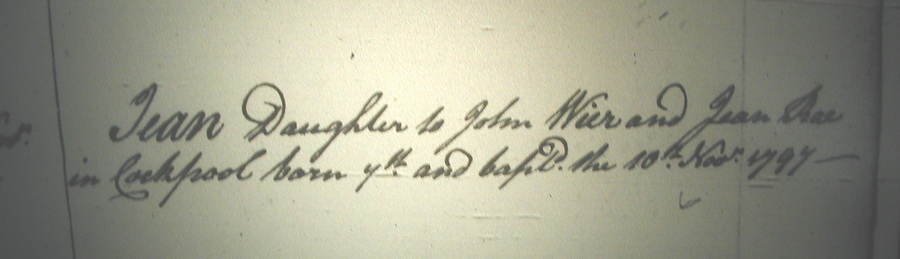 Jean Daughter to John Wier and Jean Rae
in Cockpool born 7th and bapd. the 10th Novr. 1797 —